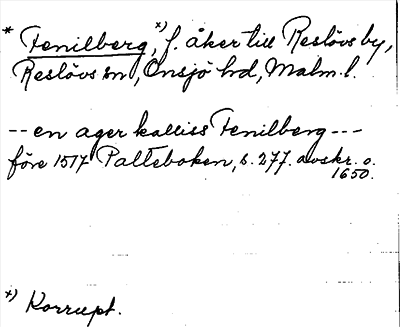 * Fenilberg, x) f. åker till Reslövs by,
Reslövs sn, Onsjö hd, Malm. l.
-- en ager kalliss Fenilberg ---
före 1517 Palteboken, s. 277. avskr. o.
1650.
x) Korrupt.